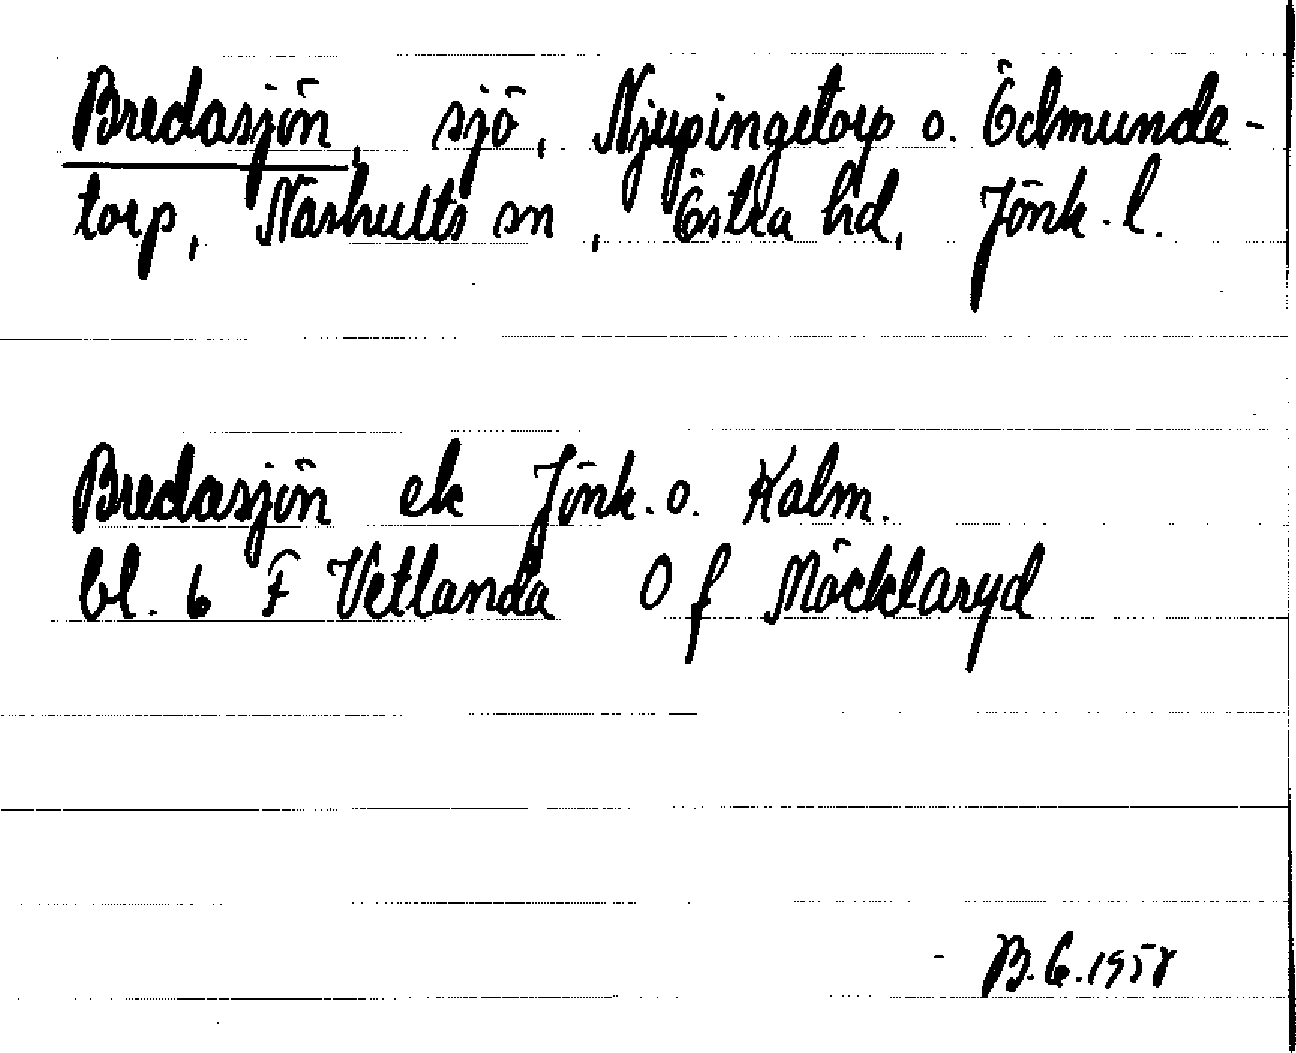 Bredasjön, sjö, Njupingetorp o. Ödmunde-
torp, Näshults sn, Östra hd, Jönk. l.
Bredasjön ek Jönk. o. Kalm.
bl. 6 F Vetlanda O f Möcklaryd
B.G. 1958